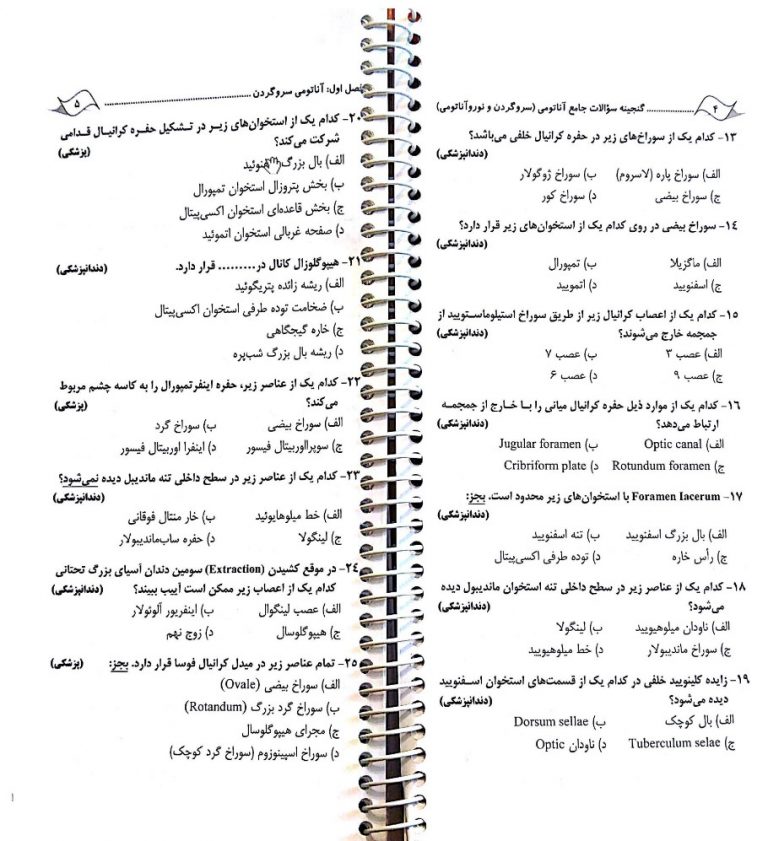 ۴ .................... گنجینه سؤالات جامع آناتومی (سروگردن و نوروآناتومی)
۱۳- کدام یک از سوراخ‌های زیر در حفره کرانیال خلفی می‌باشد؟
(دندانپزشکی)
الف) سوراخ پاره (لاسروم) ب) سوراخ ژوگولار
ج) سوراخ بیضی د) سوراخ کور
۱۴- سوراخ بیضی در روی کدام یک از استخوان‌های زیر قرار دارد؟
(دندانپزشکی)
الف) ماگزیلا ب) تمپورال
ج) اسفنویید د) اتمویید
۱۵- کدام یک از اعصاب کرانیال زیر از طریق سوراخ استیلوماستویید از
جمجمه خارج می‌شوند؟ (دندانپزشکی)
الف) عصب ۳ ب) عصب ۷
ج) عصب ۹ د) عصب ۶
۱۶- کدام یک از موارد ذیل حفره کرانیال میانی را با خارج از جمجمه
ارتباط می‌دهد؟ (دندانپزشکی)
الف) Optic canal ب) Jugular foramen
ج) Rotundum foramen د) Cribriform plate
۱۷- Foramen lacerum با استخوان‌های زیر محدود است، بجز:
(دندانپزشکی)
الف) بال بزرگ اسفنویید ب) تنه اسفنویید
ج) رأس خاره د) توده طرفی اکسی‌پیتال
۱۸- کدام یک از عناصر زیر در سطح داخلی تنه استخوان ماندیبول دیده
می‌شود؟ (دندانپزشکی)
الف) ناودان میلوهیویید ب) لینگولا
ج) سوراخ ماندیبولار د) خط میلوهیویید
۱۹- زایده کلینویید خلفی در کدام یک از قسمت‌های استخوان اسفنویید
دیده می‌شود؟ (دندانپزشکی)
الف) بال کوچک ب) Dorsum sellae
ج) Tuberculum selae د) ناودان Optic
فصل اول: آناتومی سروگردن .................... ۵
۲۰- کدام یک از استخوان‌های زیر در تشکیل حفره کرانیال قدامی
شرکت می‌کند؟ (پزشکی)
الف) بال بزرگ
ب) بخش پتروزال استخوان تمپورال
ج) بخش قاعده‌ای استخوان اکسی‌پیتال
د) صفحه غربالی استخوان اتموئید
۲۱- هیپوگلوزال کانال در......... قرار دارد. (دندانپزشکی)
الف) ریشه زائده پتریگوئید
ب) ضخامت توده طرفی استخوان اکسی‌پیتال
ج) خاره گیجگاهی
د) ریشه بال بزرگ شب‌پره
۲۲- کدام یک از عناصر زیر، حفره اینفرتمپورال را به کاسه چشم مربوط
می‌کند؟ (پزشکی)
الف) سوراخ بیضی ب) سوراخ گرد
ج) سوپرااوربیتال فیسور د) اینفرا اوربیتال فیسور
۲۳- کدام یک از عناصر زیر در سطح داخلی تنه ماندیبل دیده نمی‌شود؟
الف) خط میلوهایوئید ب) خار منتال فوقانی
ج) لینگولا د) حفره ساب‌ماندیبولار
۲۴- در موقع کشیدن (Extraction) سومین دندان آسیای بزرگ تحتانی
کدام یک از اعصاب زیر ممکن است آسیب ببیند؟ (دندانپزشکی)
الف) عصب لینگوال ب) اینفریور آلوئولار
ج) هیپوگلوسال د) زوج نهم
۲۵- تمام عناصر زیر در میدل کرانیال فوسا قرار دارد. بجز: (پزشکی)
الف) سوراخ بیضی (Ovale)
ب) سوراخ گرد بزرگ (Rotandum)
ج) مجرای هیپوگلوسال
د) سوراخ اسپینوزوم (سوراخ گرد کوچک)